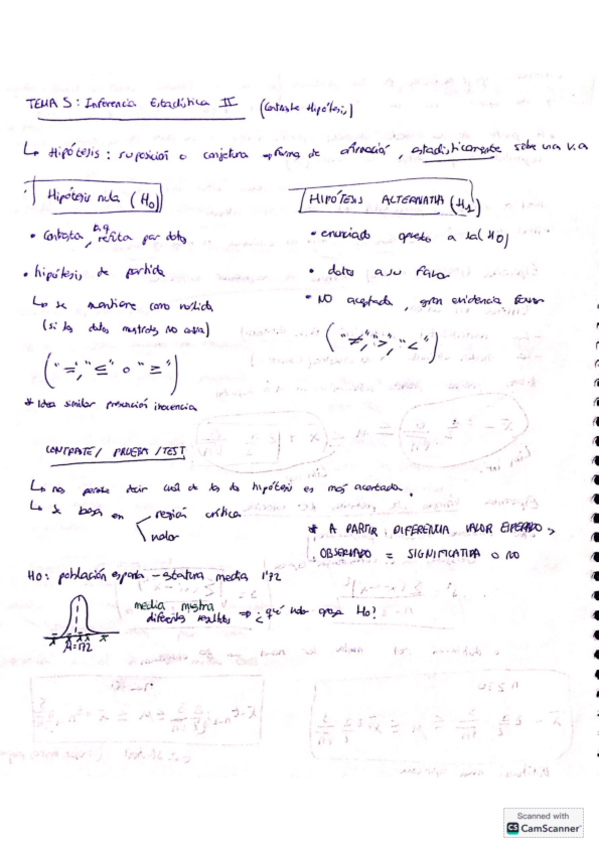 TEMA 5: Inferencia Estadística II (Contraste Hipótesis)
↳ Hipótesis: suposición o conjetura → forma de afirmación, estadísticamente sobre una v.a
Hipótesis nula (H₀)
• Contrasta, refuta por datos
• hipótesis de partida
↳ se mantiene como válida
(si los datos muestrales NO)
("=", "≤" o "≥")
* Idea similar presunción inocencia
HIPÓTESIS ALTERNATIVA (H₁)
• enunciado opuesto a la (H₀)
• datos a su favor
• NO aceptada, gran evidencia favor
("≠", ">", "<")
CONTRASTE / PRUEBA / TEST
↳ nos permite decir cuál de las dos hipótesis es más acertada.
↳ se basa en región crítica
valor
* A PARTIR DIFERENCIA VALOR ESPERADO,
OBSERVADO = SIGNIFICATIVA O NO
H₀: población españa - statura media 1'72
media muestra
diferentes resultados ⇒ ¿qué H₀?
x̄ x̄ x̄ x̄ x̄
μ=172
Scanned with
CS CamScanner